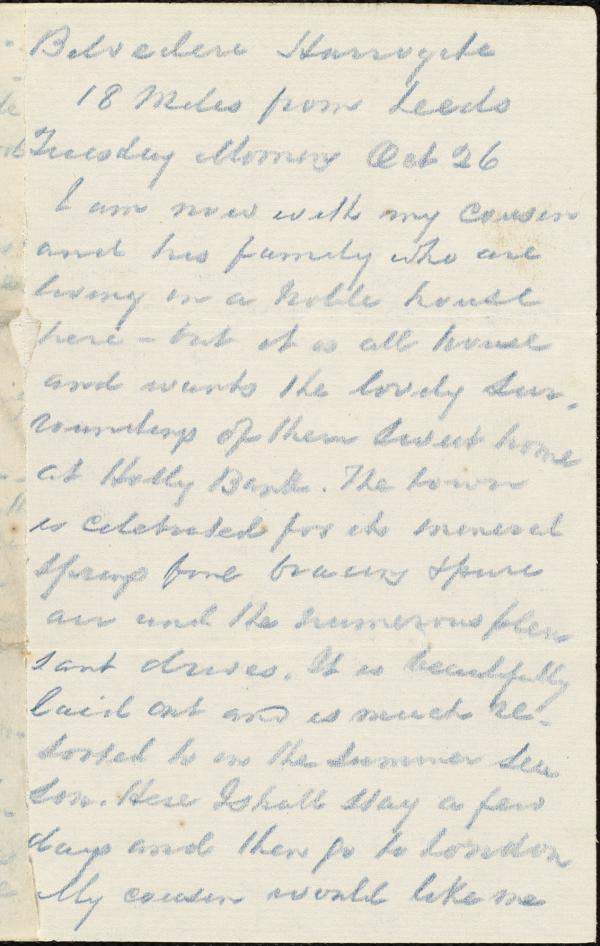 Belvedere Harrogate
18 Miles from Leeds
Tuesday Morning Oct 26
I am now with my cousin
and his family who are
living in a noble house
here - but it is all house
and wants the lovely sur-
roundings of them sweet home
at Holly Bank. The town
is celebrated for its mineral
springs fine bracing & pure
air and the numerous plea
sant drives. It is beautifully
laid out and is much re-
sorted to in the summer sea
son. Here I shall stay a few
days and then go to London
My cousin would like me